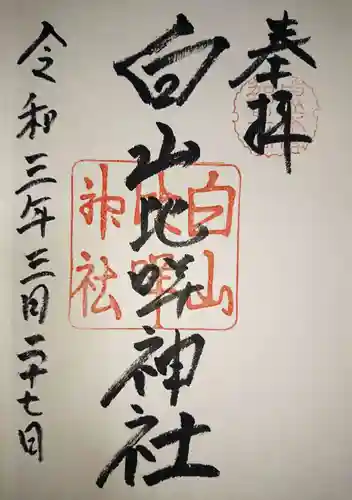 奉拝
白山比咩神社
白山
比咩
神社
令和三年三月二十七日